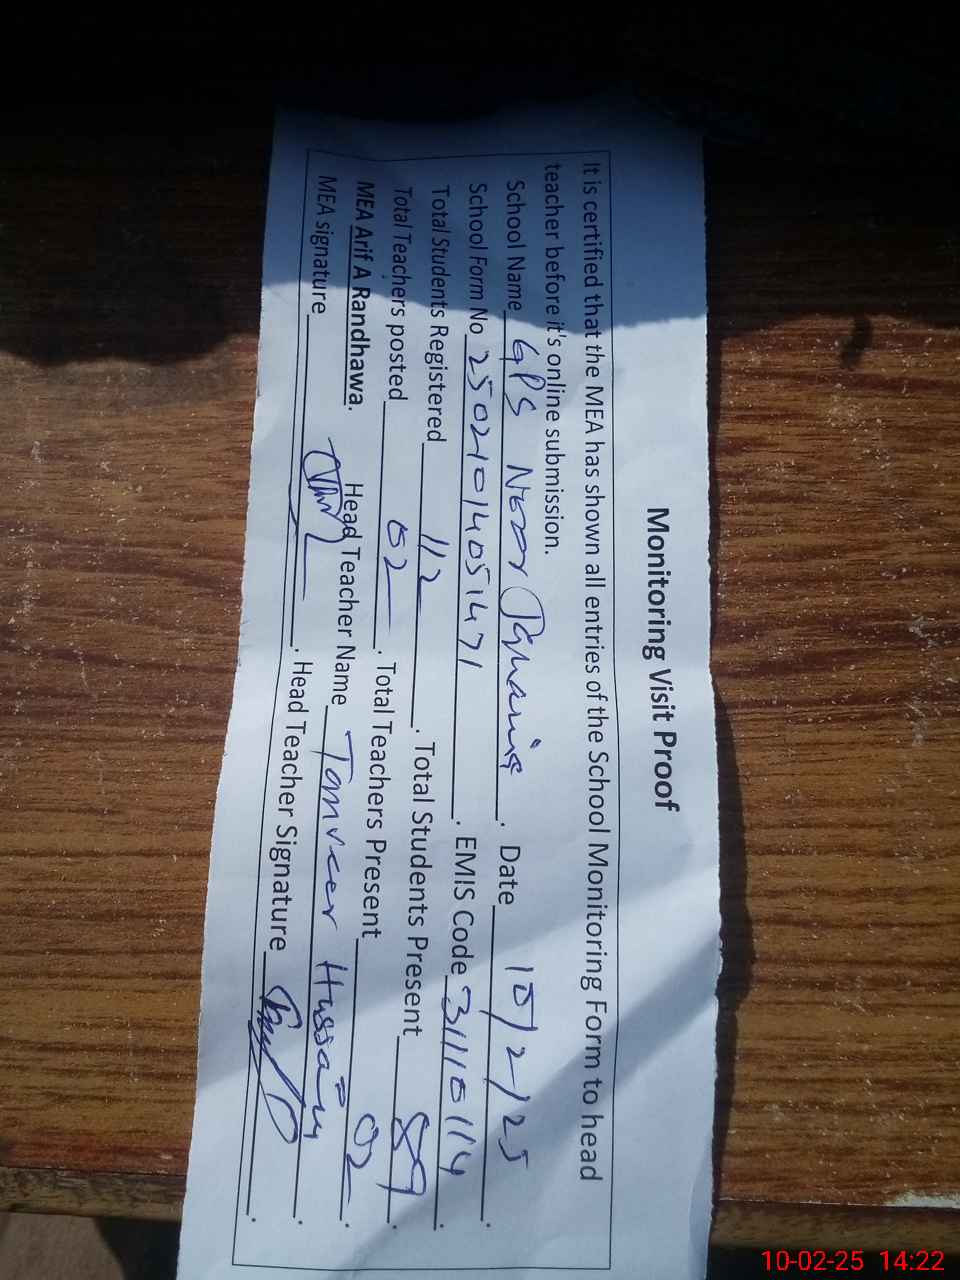 Monitoring Visit Proof
It is certified that the MEA has shown all entries of the School Monitoring Form to head
teacher before it's online submission.
School Name GPS Noor. Date 10/2/25.
School Form No 25021014051471. EMIS Code 31110114
Total Students Registered 112. Total Students Present 89.
Total Teachers posted 02. Total Teachers Present 02.
MEA Arif A Randhawa. Head Teacher Name Tanveer Hussain.
MEA signature. Head Teacher Signature.
10-02-25 14:22